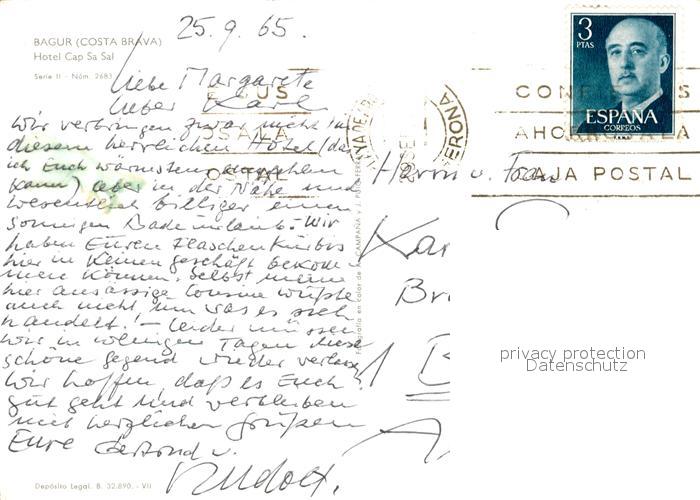 25.9.65.
BAGUR (COSTA BRAVA)
Hotel Cap Sa Sal
Serie II - Núm. 2683
Liebe Margarete
lieber Karl
wir verbringen zwar nicht in
diesem herrlichen Hotel (das
ich Euch wärmstens empfehlen
kann) aber in der Nähe und
wesentlich billiger einen
sonnigen Badeurlaub. Wir
haben Euren Flaschenkürbis
hier in keinem Geschäft bekom-
men können. Selbst meine
hier ansässige Cousine wußte
auch nicht, um was es sich
handelt! - Leider müssen
wir in wenigen Tagen diese
schöne Gegend wieder verlassen
Wir hoffen, daß es Euch
gut geht und verbleiben
mit herzlichen Grüßen
Eure Gertrud u.
Rudolf.
Depósito Legal. B. 32.890. - VII
Fotografía en color de A. CAMPAÑA y J. PUIG-FERRAN
GERONA
3
PTAS
ESPAÑA
CORREOS
CON
AHOR LA
CAJA POSTAL
Herrn u. Frau
Kar
Br
privacy protection
Datenschutz